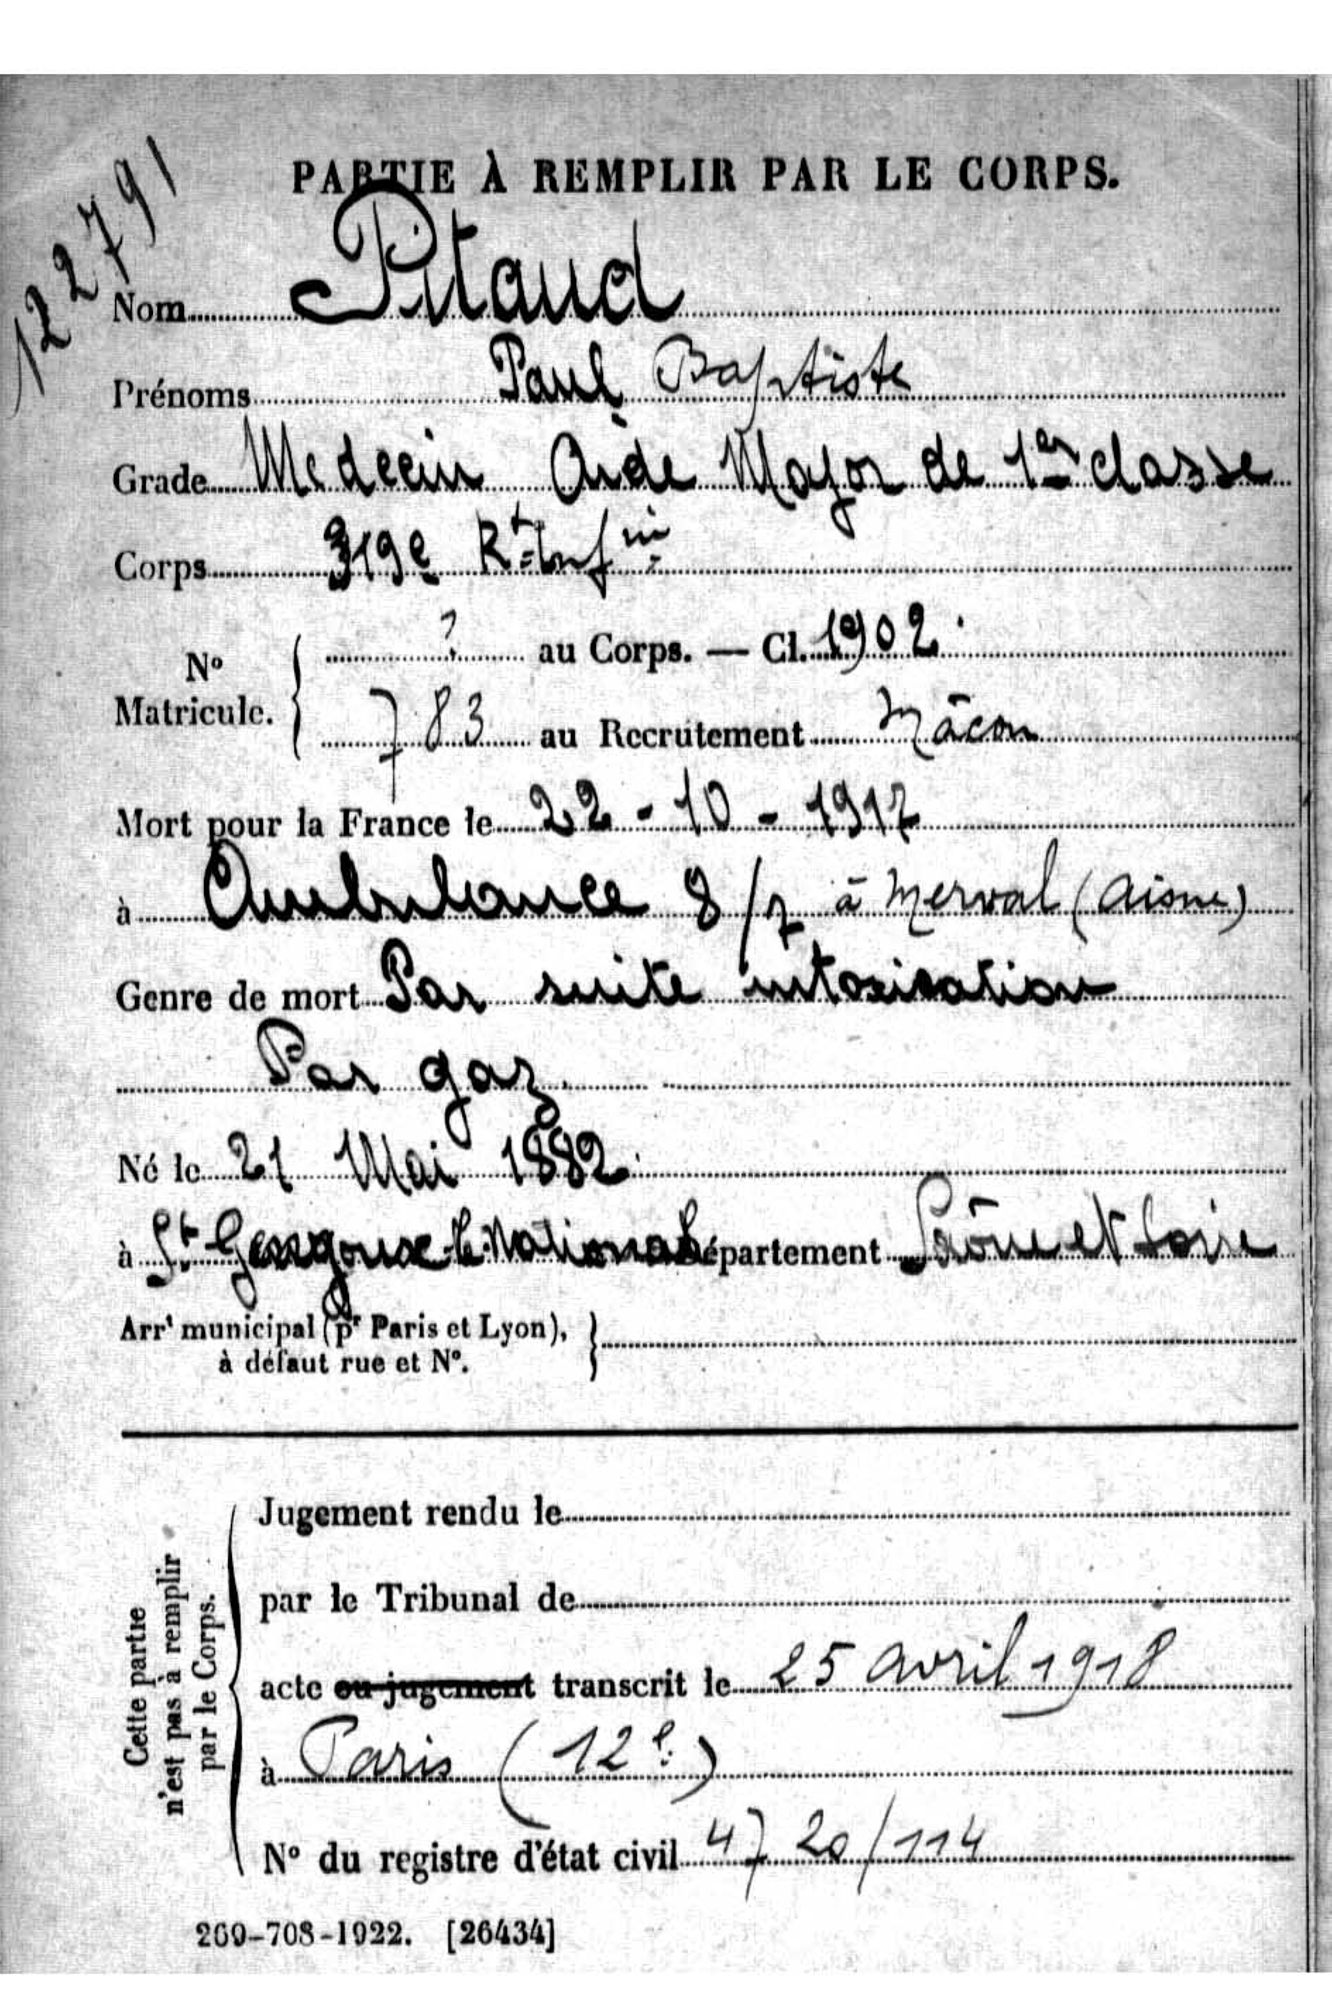 122791
PARTIE À REMPLIR PAR LE CORPS.
Nom Pitaud
Prénoms Paul Baptiste
Grade Medecin Aide Major de 1re classe
Corps 319e Rt Infie
N° Matricule. ? au Corps. — Cl. 1902.
783 au Recrutement Mâcon
Mort pour la France le 22 - 10 - 1917
à Ambulance 8/7 à Merval (Aisne)
Genre de mort Par suite intoxication
Par gaz
Né le 21 Mai 1882.
à St Gengoux-le-National Département Saône et Loire
Arrt municipal (pr Paris et Lyon),
à défaut rue et N°.
Cette partie
n'est pas à remplir
par le Corps.
Jugement rendu le
par le Tribunal de
acte ou jugement transcrit le 25 avril 1918
à Paris (12e)
N° du registre d'état civil 4720/114
269-708-1922. [26434]